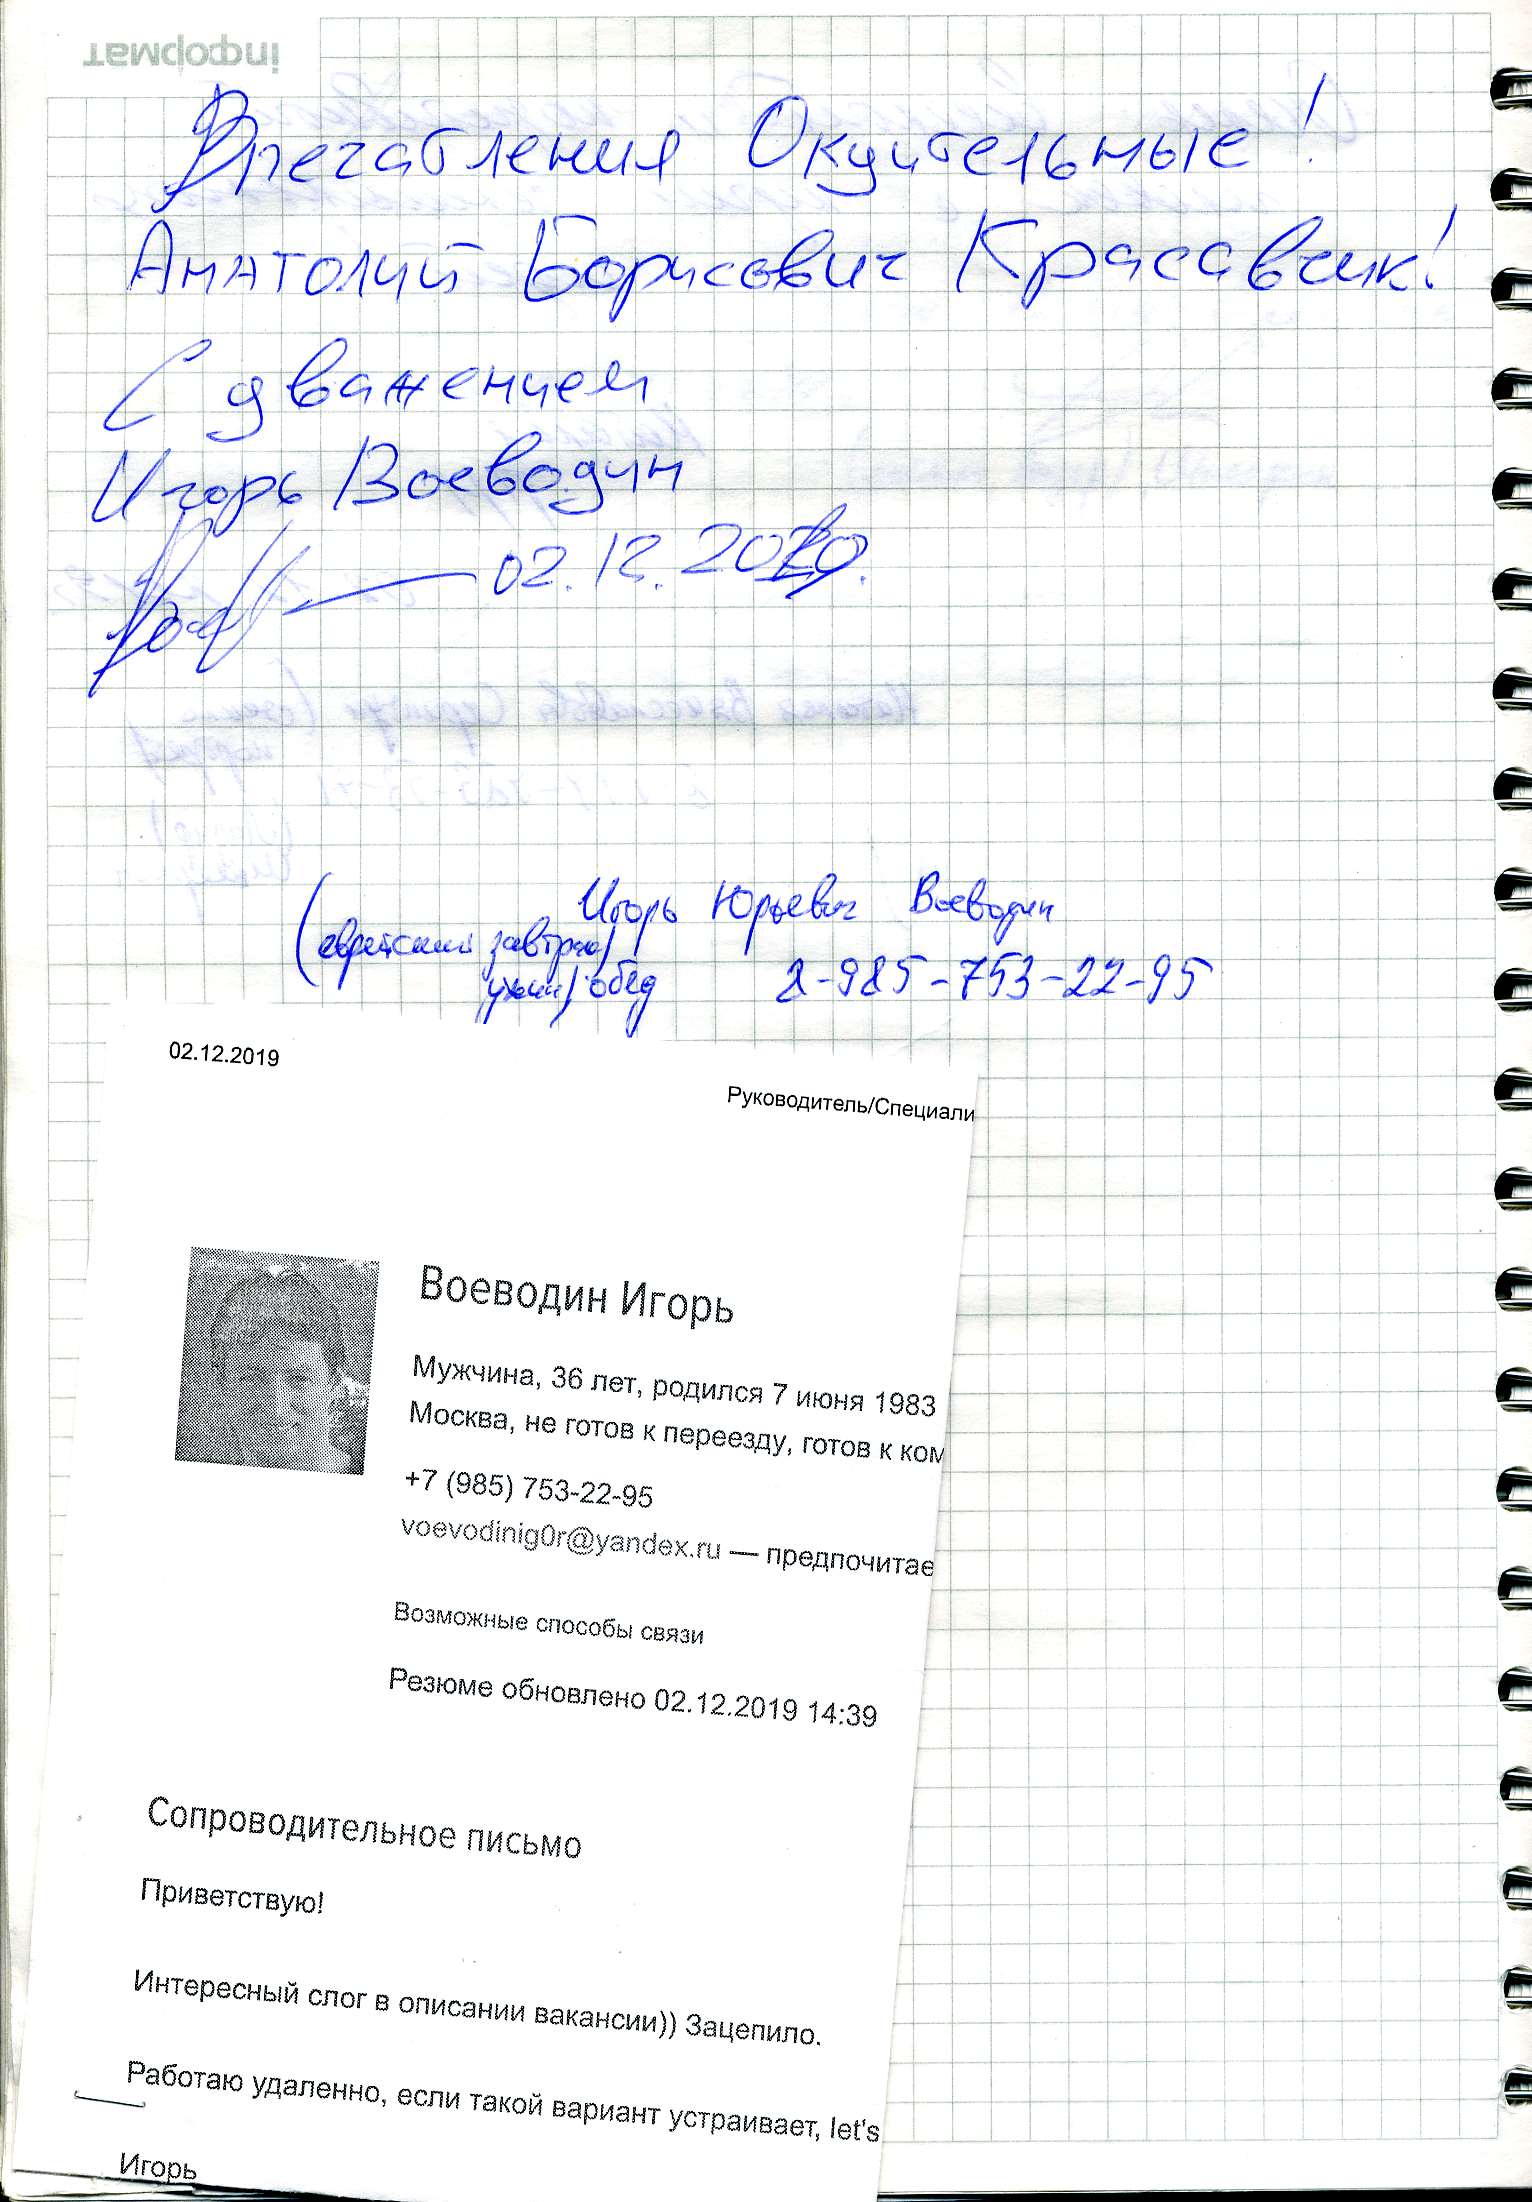 інформат
Впечатления Окуительные!
Анатолий Борисович Красавчик!
С уважением
Игорь Воеводин
02.12.2019.
Игорь Юрьевич Воеводин
(еврейский завтрак/
ужин/обед 8-985-753-22-95
02.12.2019
Руководитель/Специали
Воеводин Игорь
Мужчина, 36 лет, родился 7 июня 1983
Москва, не готов к переезду, готов к ком
+7 (985) 753-22-95
voevodinig0r@yandex.ru — предпочитае
Возможные способы связи
Резюме обновлено 02.12.2019 14:39
Сопроводительное письмо
Приветствую!
Интересный слог в описании вакансии)) Зацепило.
Работаю удаленно, если такой вариант устраивает, let's
Игорь